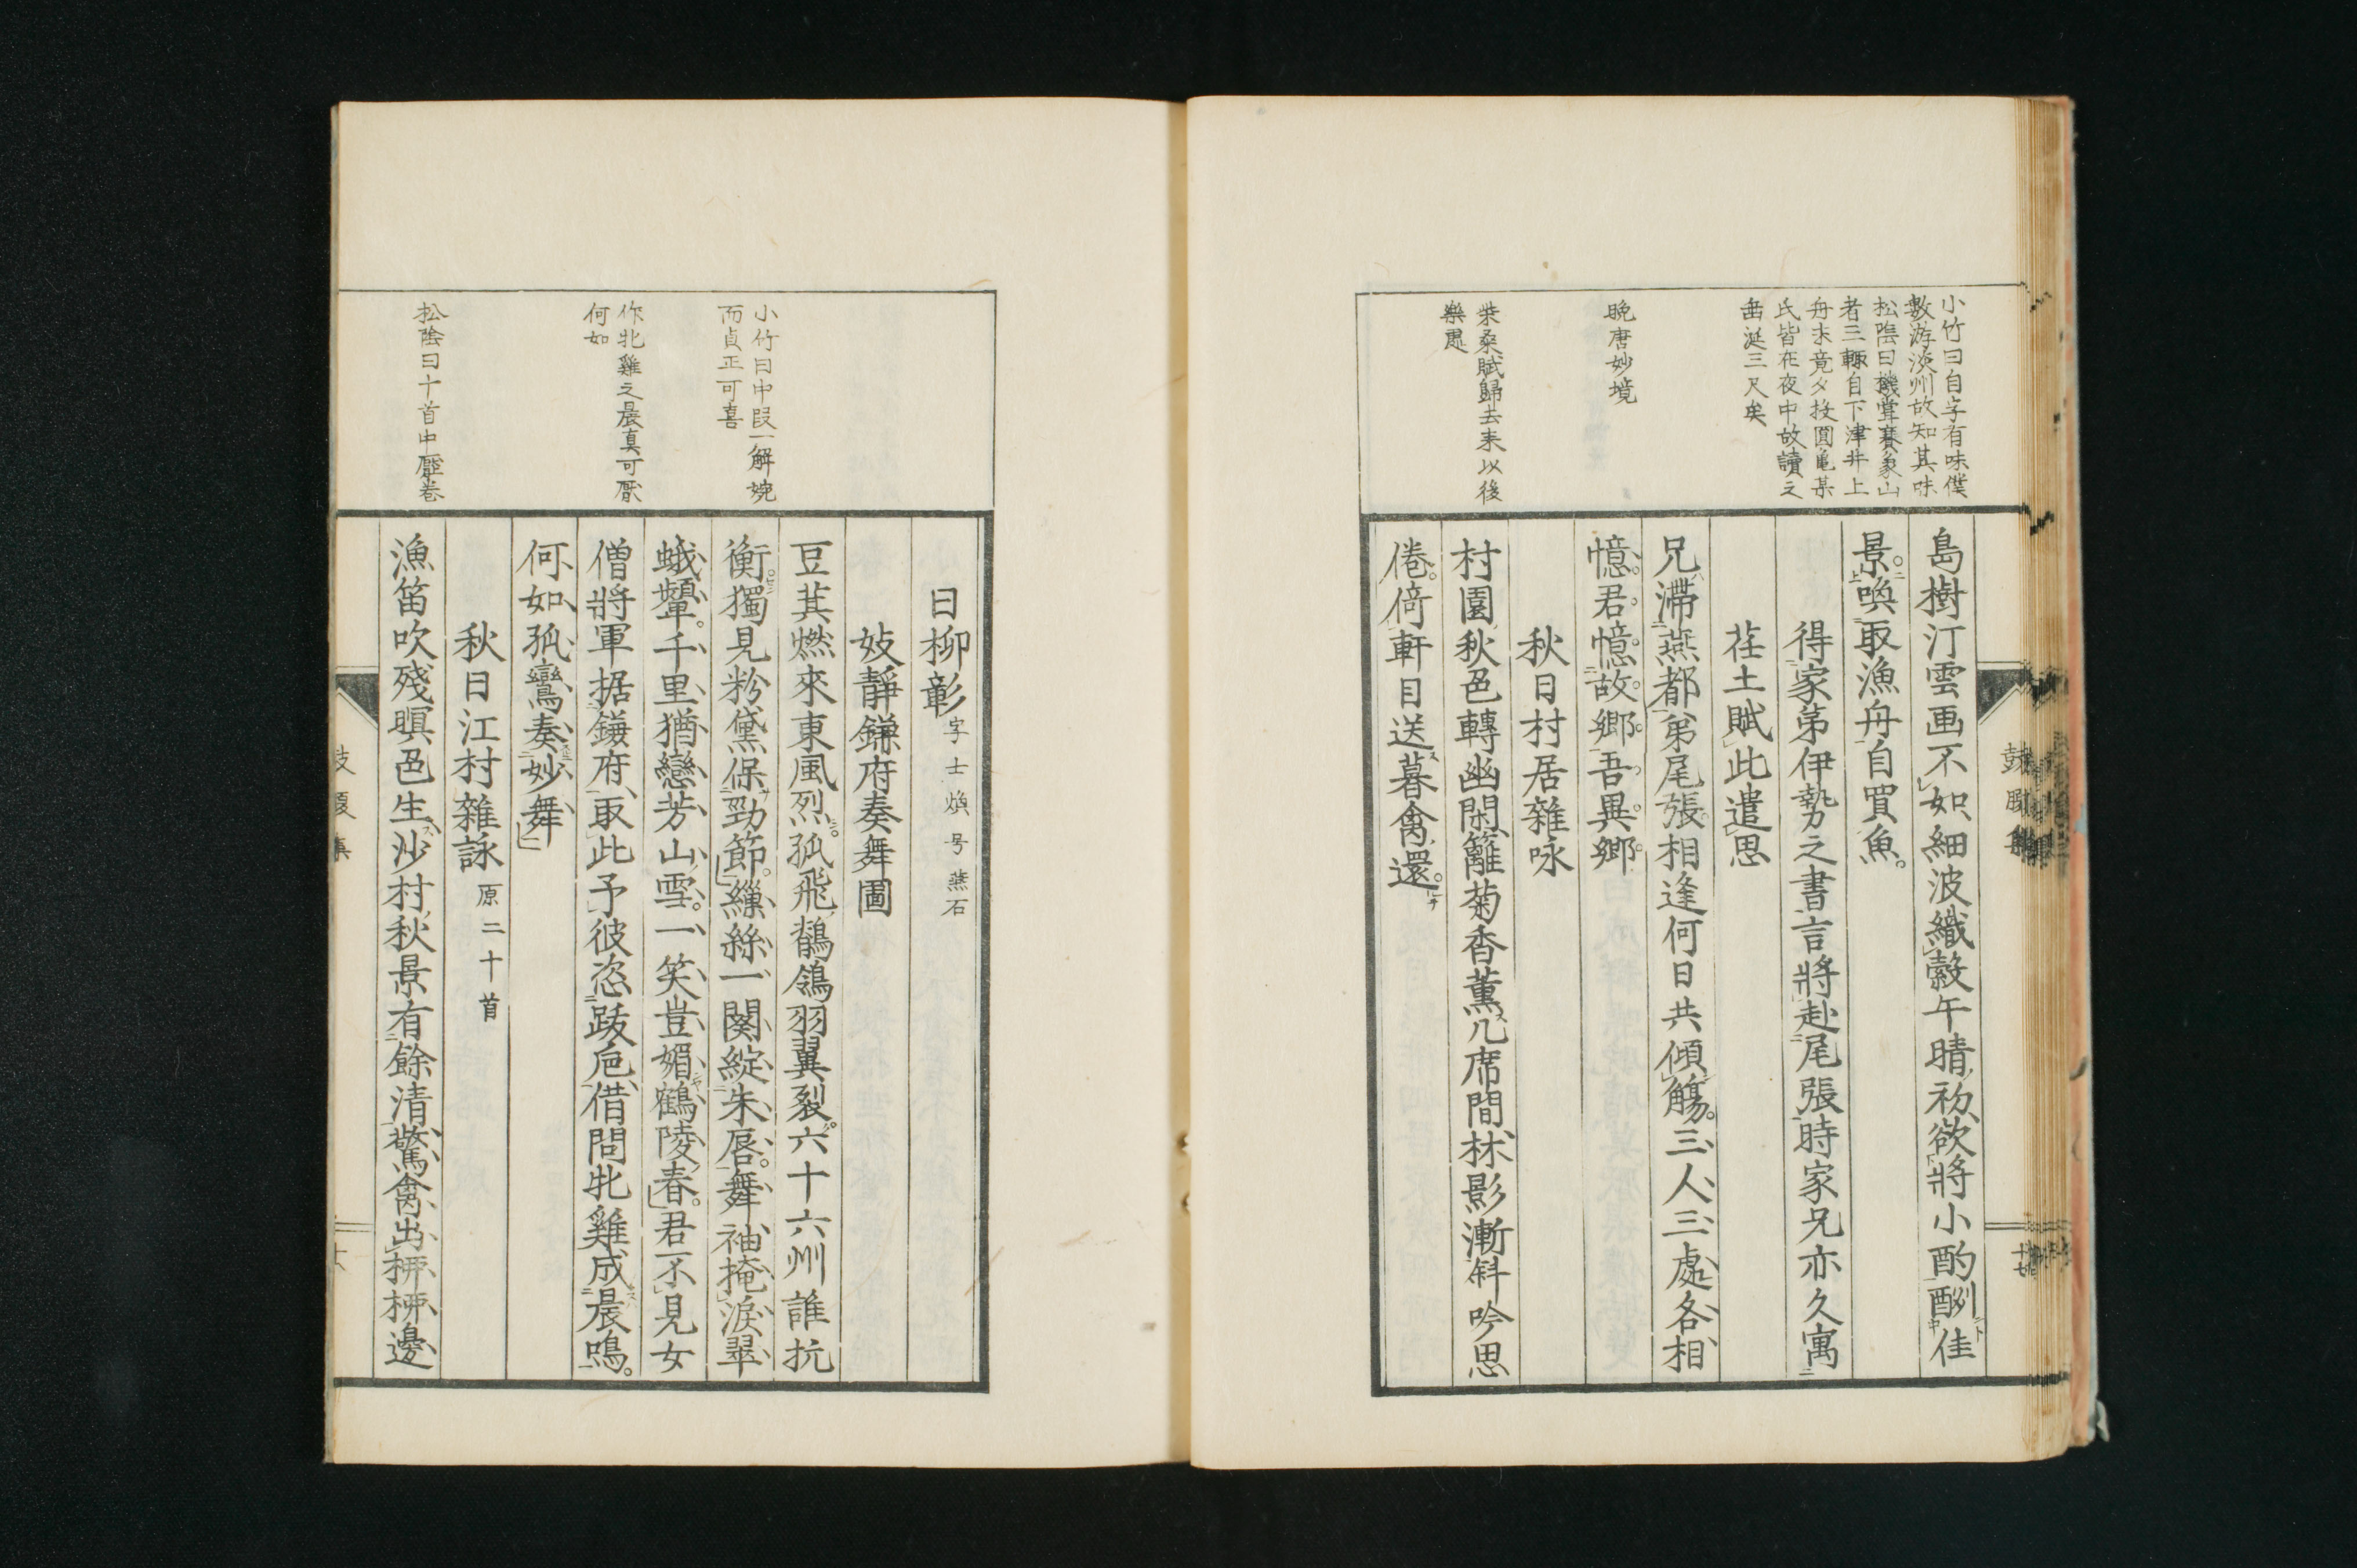 小竹曰自字有味僕
數游淡州故知其味
松陰曰機嘗賽象山
者三輙自下津井上
舟未竟夕投圓亀某
氏皆在夜中故讀之
垂涎三尺矣
晩唐妙境
柴桑賦歸去来以後
樂處
島樹汀雲画不如細波織縠午晴初欲將小酌酬佳
景喚取漁舟自買魚
得家弟伊勢之書言將赴尾張時家兄亦久寓
荏土賦此遣思
兄滯燕都弟尾張相逢何日共傾觴三人三處各相
憶君憶故郷吾異郷
秋日村居雜咏
村園秋色轉幽閑籬菊香薫几席間林影漸斜吟思
倦倚軒目送暮禽還
小竹曰中段一解婉
而貞正可喜
作牝雞之晨真可厭
何如
松陰曰十首中壓卷
日柳彰字士煥号燕石
妓靜鎌府奏舞圖
豆萁燃來東風烈孤飛鶺鴒羽翼裂六十六州誰抗
衡獨見粉黛保勁節繅絲一闋綻朱唇舞袖掩淚翠
蛾顰千里猶戀芳山雪一笑豈媚鶴陵春君不見女
僧將軍据鎌府取此予彼恣跋扈借問牝雞成晨鳴
何如孤鸞奏妙舞
秋日江村雜詠原二十首
漁笛吹殘暝色生沙村秋景有餘清驚禽出柳柳邊